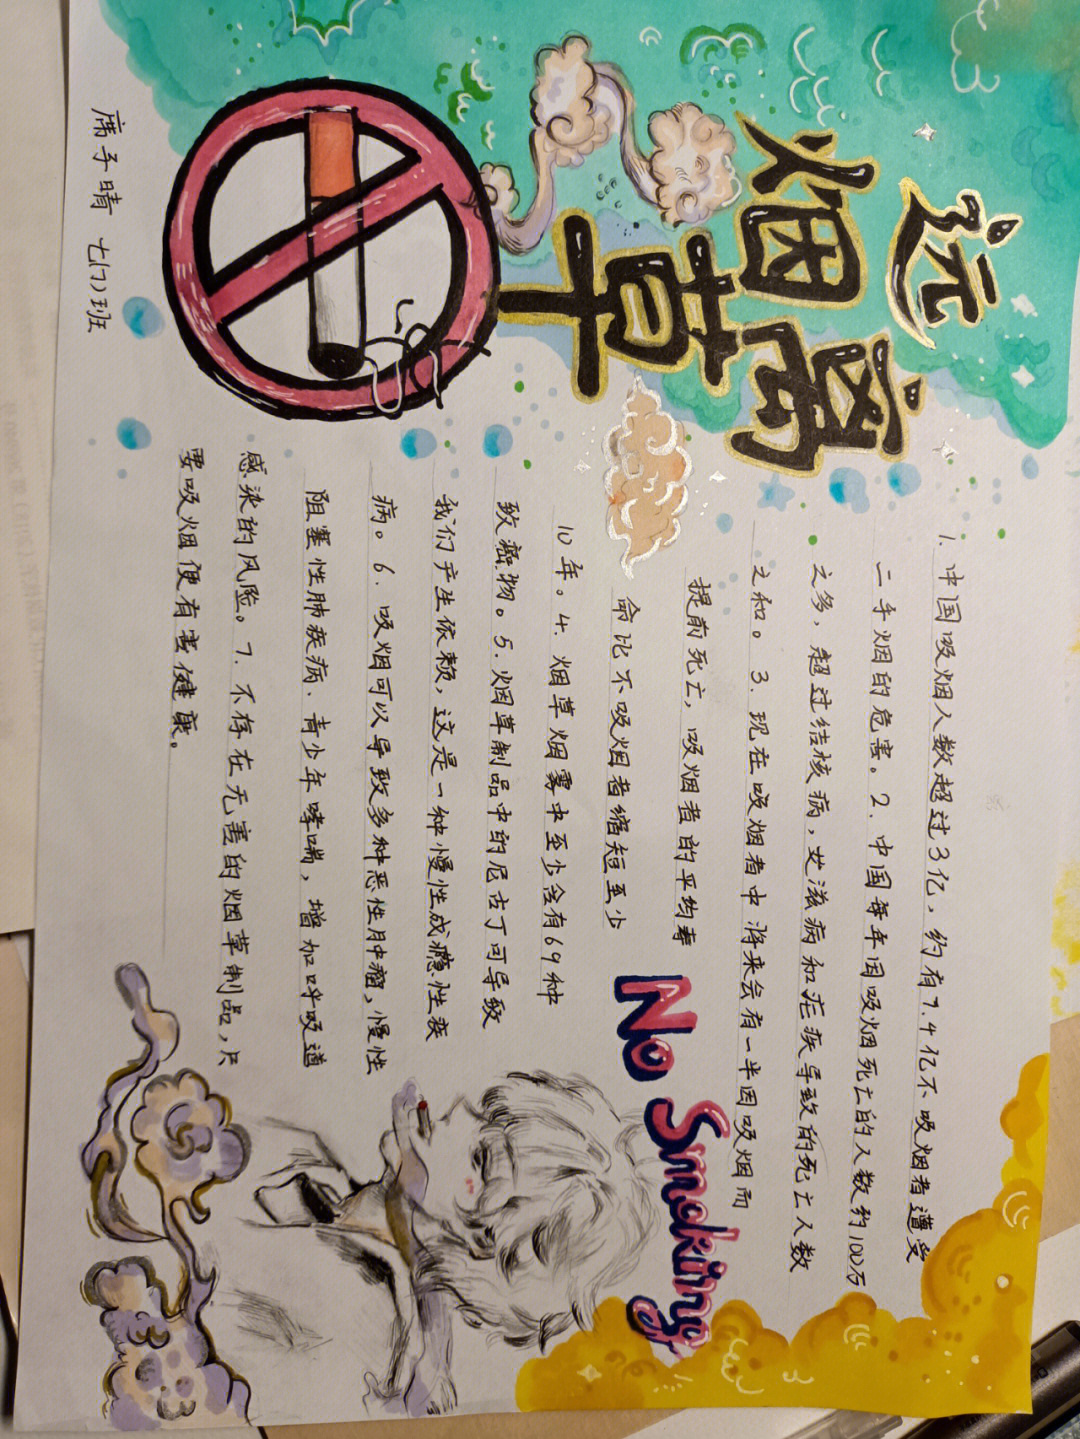 远离
烟草
1. 中国吸烟人数超过3亿，约有7.4亿不吸烟者遭受
二手烟的危害。2. 中国每年因吸烟死亡的人数约100万
之多，超过结核病，艾滋病和疟疾导致的死亡人数
之和。3. 现在吸烟者中将来会有一半因吸烟而
提前死亡，吸烟者的平均寿
命比不吸烟者缩短至少
10年。4. 烟草烟雾中至少含有69种
致癌物。5. 烟草制品中的尼古丁可导致
我们产生依赖，这是一种慢性成瘾性疾
病。6. 吸烟可以导致多种恶性肿瘤，慢性
阻塞性肺疾病、青少年哮喘，增加呼吸道
感染的风险。7. 不存在无害的烟草制品，只
要吸烟便有害健康。
No Smoking
席子晴 七(7)班